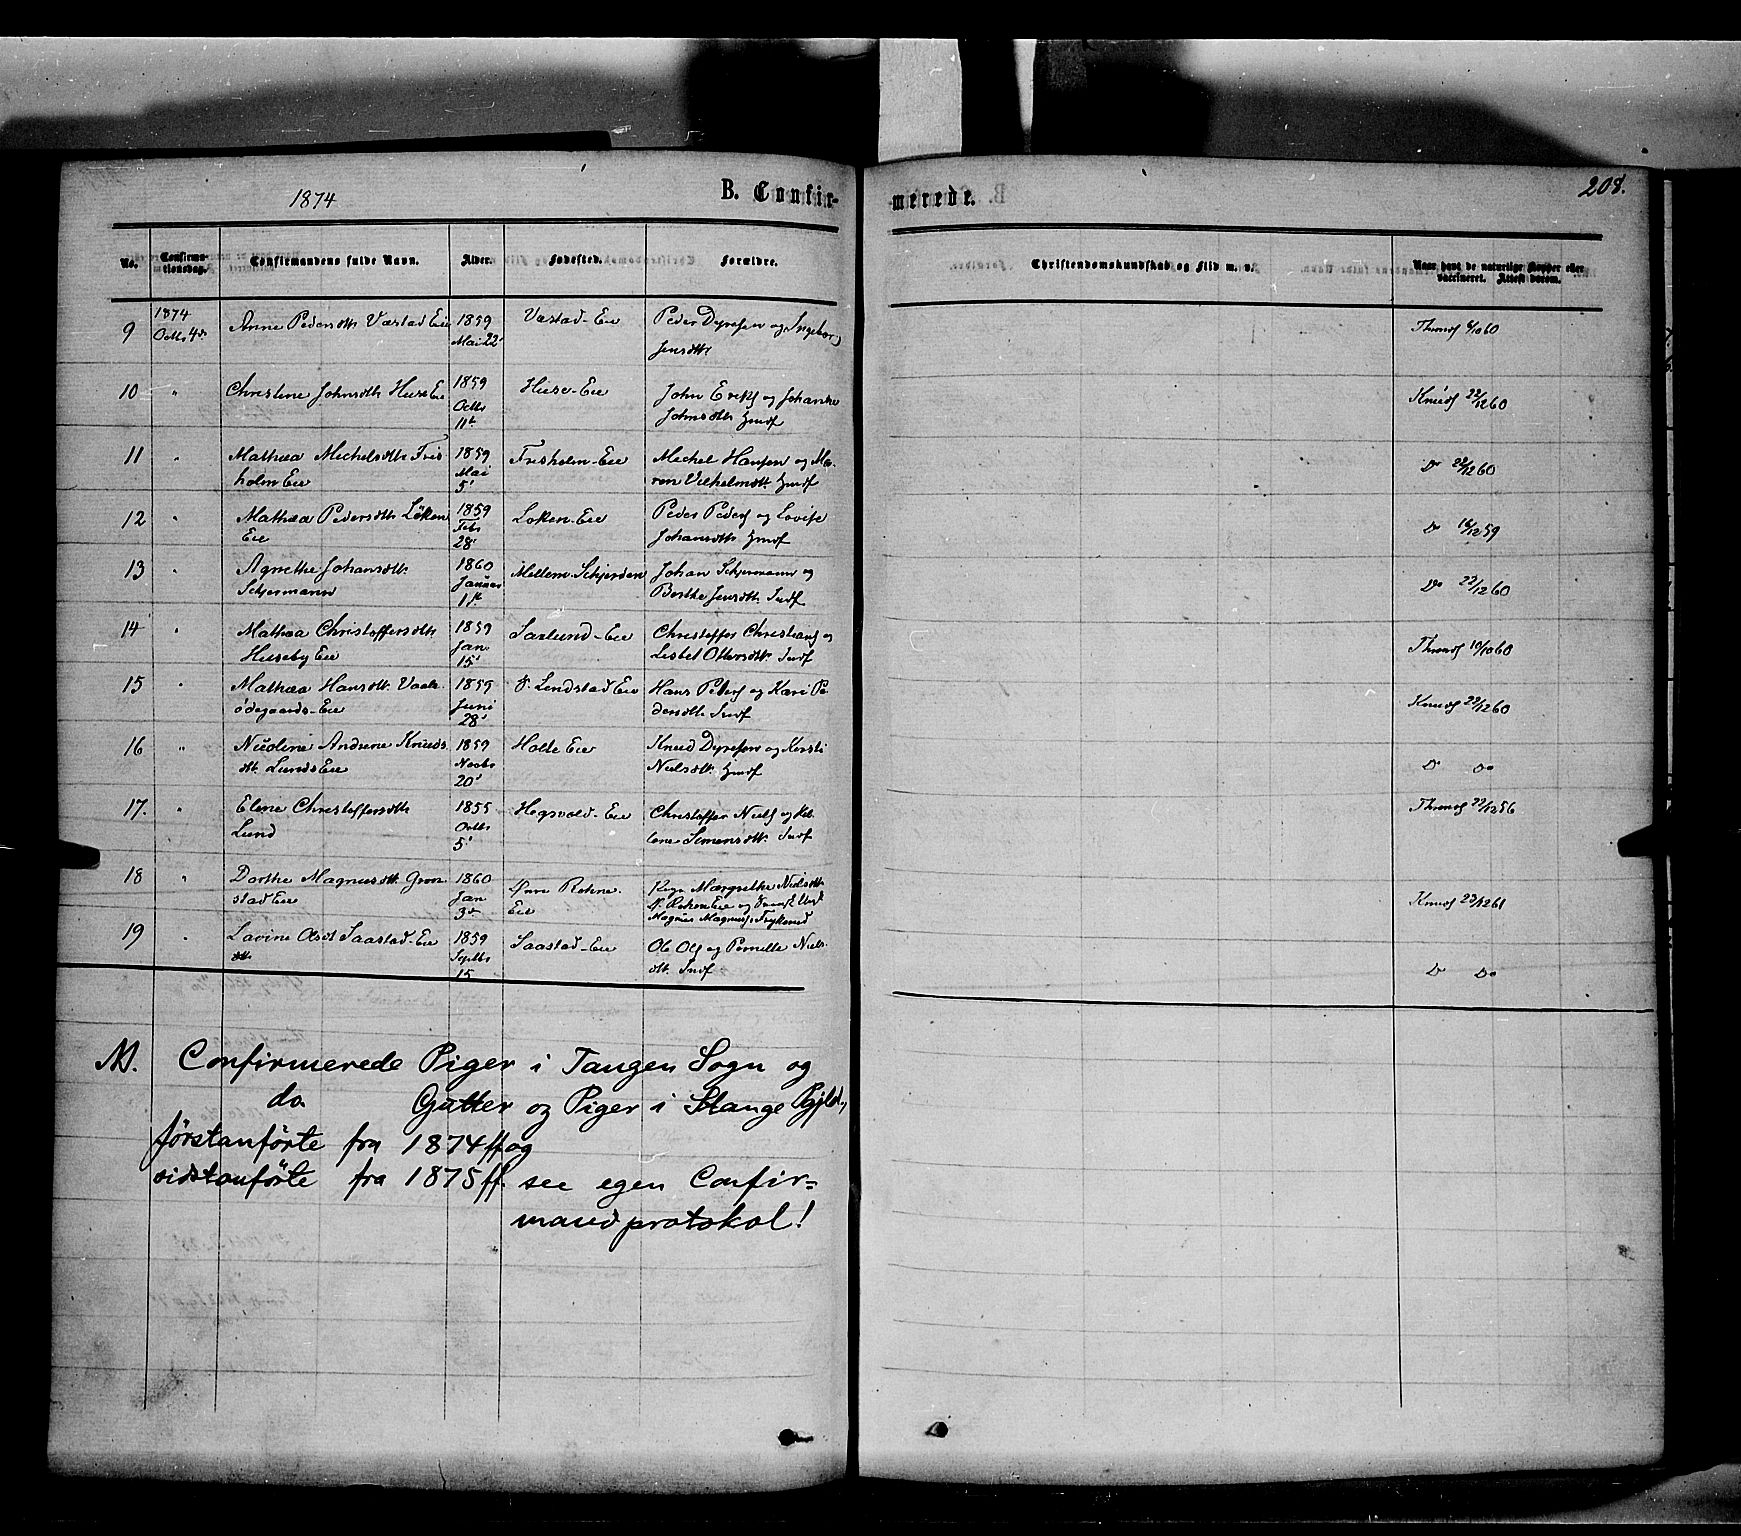 1874
B. Confir-
merede.
208.
No.
Confirma-
tionsdag.
Confirmandens fulde Navn.
Alder.
Fødested.
Forældre.
Christendomskundskab og Flid m. v.
Naar havt de naturlige Kopper eller
vaccineret. Attest derom.
9 1874 Octb. 4de Anne Pedersdtr Væstad Eie 1859 Mai 22' Væstad-Eie Peder Dyresen og Ingebor
Jensdtr Thrond 6/10 60
10 " Christine Johnsdtr Huse Eie 1859 Octbr 11te Huse-Eie John Eriks og Johanne
Johnsdtr Gmdf Knud 22/12 60
11 " Mathea Michelsdtr Fris-
holm Eie 1859 Mai 5' Frisholm-Eie Michel Hansen og Ma-
ren Vilhelmsdtr. Gmdf Do 22/12 60
12 " Mathea Pedersdtr Løken
Eie 1859 Febr 28' Loken-Eie Peder Peders og Lovise
Johansdtr Gmdf Do 16/12 59
13 " Agnethe Johansdtr.
Schjermann 1860 Januar 11te Mellem-Schjerden Johan Schjermann og
Berthe Jensdtr. Indf Do 22/12 60
14 " Mathea Christoffersdtr
Huseby Eie 1859 Jan. 15' Saxlund-Eie Christoffer Christians og
Lisbet Ottersdtr. Indf Thrond 10/10 60
15 " Mathea Hansdtr. Vaale-
ødegaards-Eie 1859 Juni 28' Lindstad Eie Hans Peders og Kari Pe
dersdtr Indf Knud 22/12 60
16 " Nicoline Andrine Knuds
dtr. Lunds Eie 1859 Novbr 20' Holte Eie Knud Dyresen og Kersti
Nielsdtr. Gmdf Do Do
17. " Eline Christoffersdtr
Lund 1855 Octbr 5' Hogsvold-Eie Christoffer Niels og Hel-
lene Simensdtr. Indf Thrond 22/12 56
18 " Dorthe Magnusdtr. Gron-
stad Eie 1860 Jan 3de Øvre Rohne
Eie Pige Margrethe Nielsdtr
Rohen Eie og Svensk Ungk
Magnus Magnuss, Fryksend Knud 22/12 61
19 " Lavine Olsdt Saastad-Eie
dtr 1859 Septbr 15 Saastad-Eie Ole Ols og Pernille Niels-
dtr. Indf Do Do
NB. Confirmerede Piger i Tangen Sogn og
do. Gutter og Piger i Stange Pgjeld.,
førstanførte fra 1874 ff og
sidstanførte fra 1875 ff. see egen Confir=
mandprotokol!